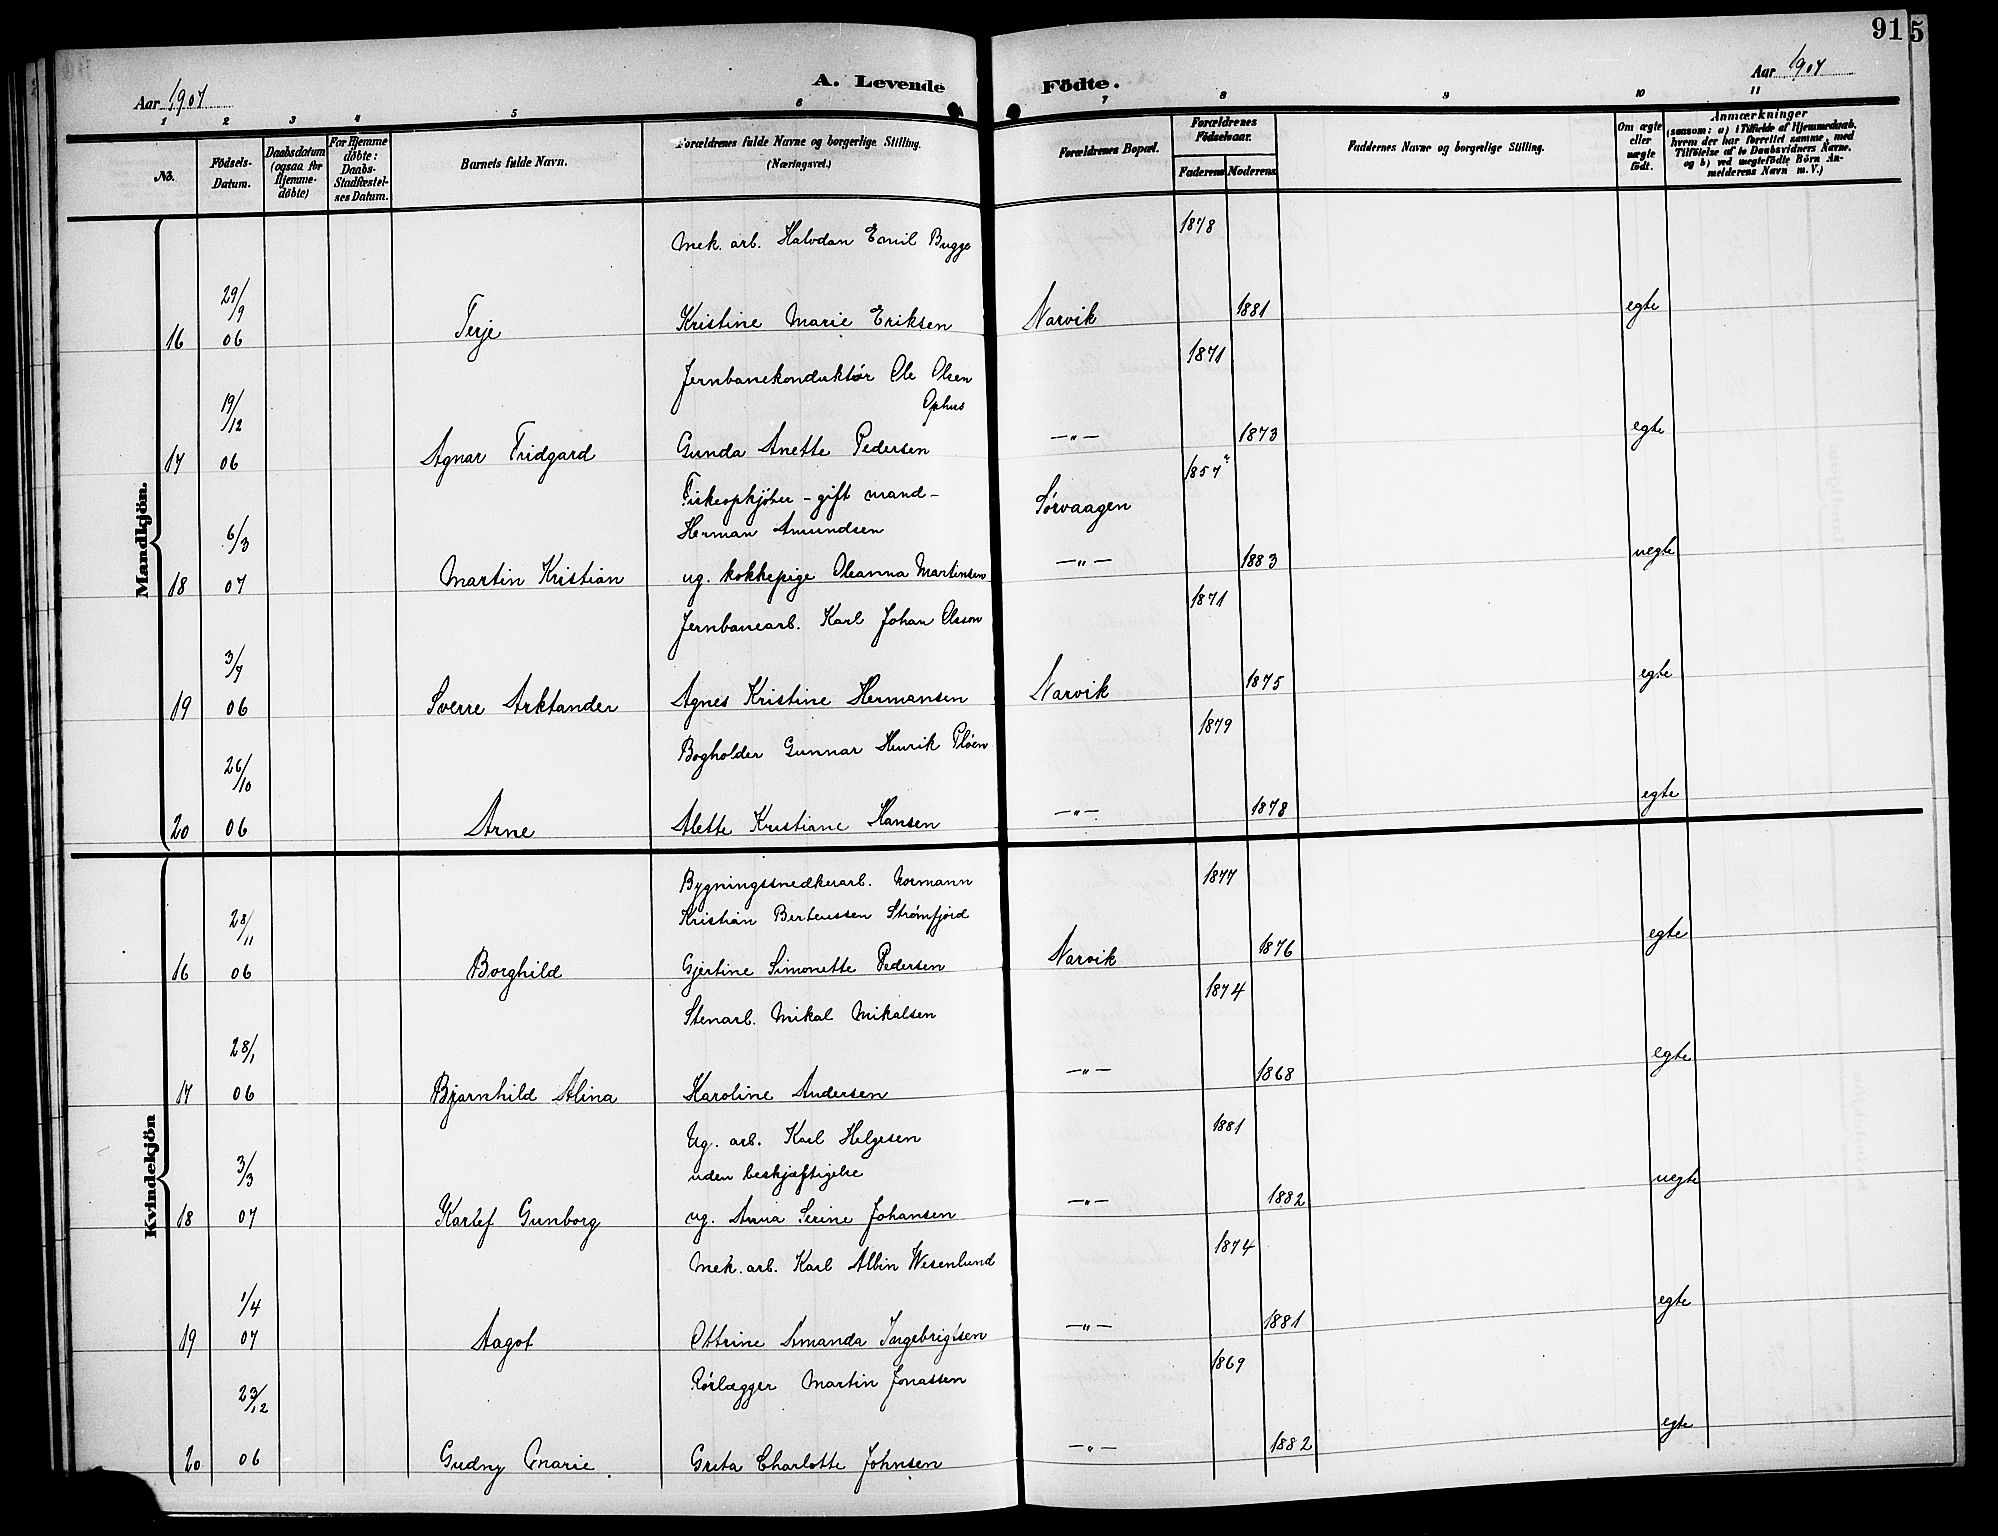 91
5
Aar 1907
A. Levende
Födte.
Aar 1907
1 2 3 4 5 6 7 8 9 10 11
No.
Födsels-Datum.
Daabsdatum (ogsaa for Hjemme-døbte)
For Hjemme døbte: Daabs-Stadfæstel-ses Datum.
Barnets fulde Navn.
Forældrenes fulde Navne og borgerlige Stilling.
(Næringsvei.)
Forældrenes Bopæl.
Forældrenes Födselsaar.
Faderens Moderens
Faddernes Navne og borgerlige Stilling.
Om ægte eller uægte født.
Anmærkninger
(saasom: a) i Tilfælde af Hjemmedaab, hvem der har forrettet samme, med Tilføielse af to Daabsvidners Navne, og b) ved uegtefödte Börn An-melderens Navn m. V.)
Mandkjön.
Mek. arb. Halvdan Emil Bugge 1878
16 29/9 06 Terje Kristine Marie Eriksen Narvik 1881 egte
Jernbanekonduktør Ole Olsen 1871
Ophus
17 19/12 06 Agnar Fridgard Gunda Anette Pedersen —„— 1873 egte
Fiskeopkjøber – gift mand – Sørvaagen 1857
Herman Amundsen
18 6/3 07 Martin Kristian ug. kokkepige Oleanna Martinsen —„— 1883 uegte
Jernbanearb. Karl Johan Olsson 1871
19 3/7 06 Sverre Arktander Agnes Kristine Hermansen Narvik 1875 egte
Bogholder Gunnar Henrik Pløen 1879
20 26/10 06 Arne Alette Kristiane Hansen —„— 1878 egte
Kvindekjön
Bygningssnedkerarb. Normann 1877
Kristian Berteussen Strømfjord
16 28/11 06 Borghild Gjertine Simonette Pedersen Narvik 1876 egte
Stenarb. Mikal Mikalsen 1874
17 28/1 06 Bjarnhild Alina Karoline Andersen —„— 1868 egte
Ug. arb. Karl Helgesen 1881
uden beskjæftigelse
18 3/3 07 Karlef Gunborg ug. Anna Serine Johansen —„— 1882 uegte
Mek. arb. Karl Albin Wesenlund 1874
19 1/4 07 Aagot Ottrine Amanda Ingebrigtsen —„— 1881 egte
Rørlægger Martin Jonassen 1869
20 23/12 06 Gudny Marie Greta Charlotte Johnsen —„— 1882 egte